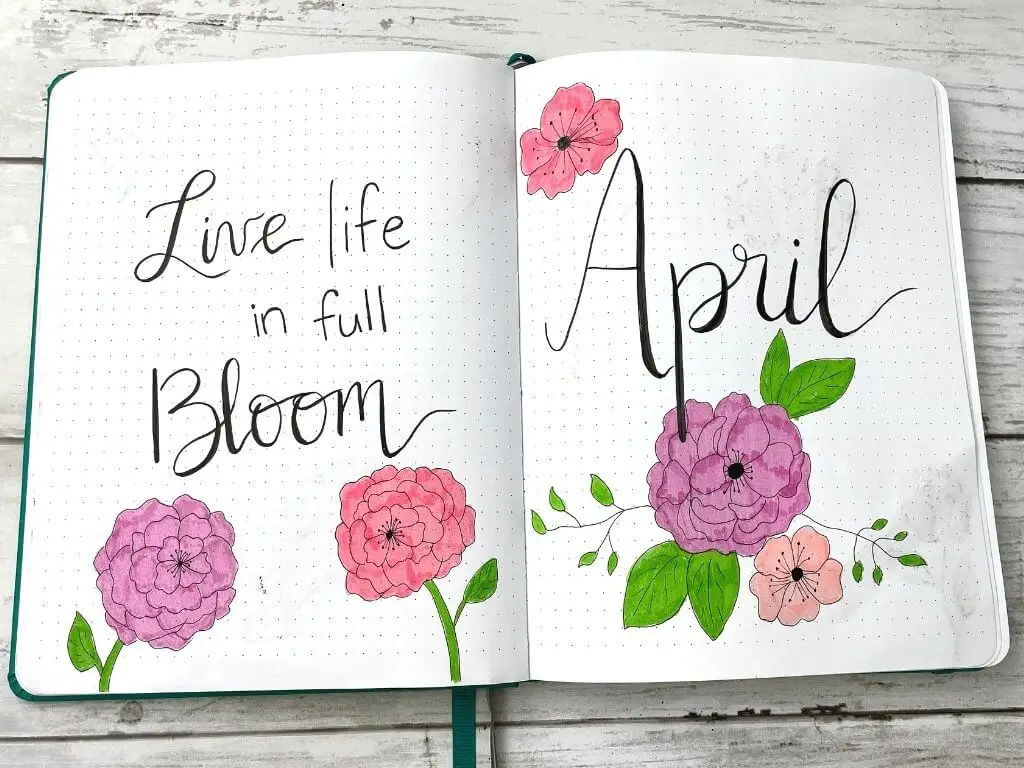 Live life
in full
Bloom
April